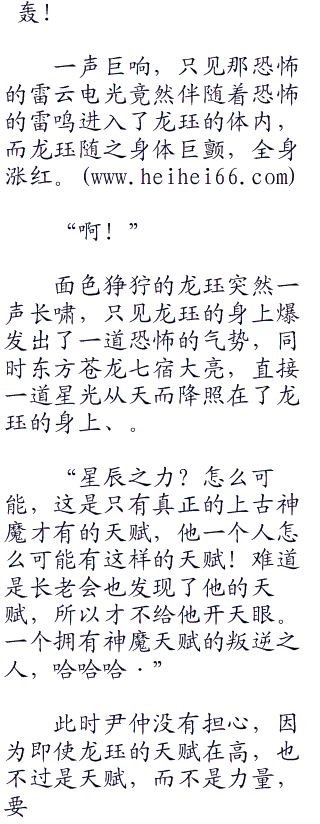 轰！
一声巨响，只见那恐怖
的雷云电光竟然伴随着恐怖
的雷鸣进入了龙珏的体内，
而龙珏随之身体巨颤，全身
涨红。(www.heihei66.com)
“啊！”
面色狰狞的龙珏突然一
声长啸，只见龙珏的身上爆
发出了一道恐怖的气势，同
时东方苍龙七宿大亮，直接
一道星光从天而降照在了龙
珏的身上、。
“星辰之力？怎么可
能，这是只有真正的上古神
魔才有的天赋，他一个人怎
么可能有这样的天赋！难道
是长老会也发现了他的天
赋，所以才不给他开天眼。
一个拥有神魔天赋的叛逆之
人，哈哈哈·”
此时尹仲没有担心，因
为即使龙珏的天赋在高，也
不过是天赋，而不是力量，
要